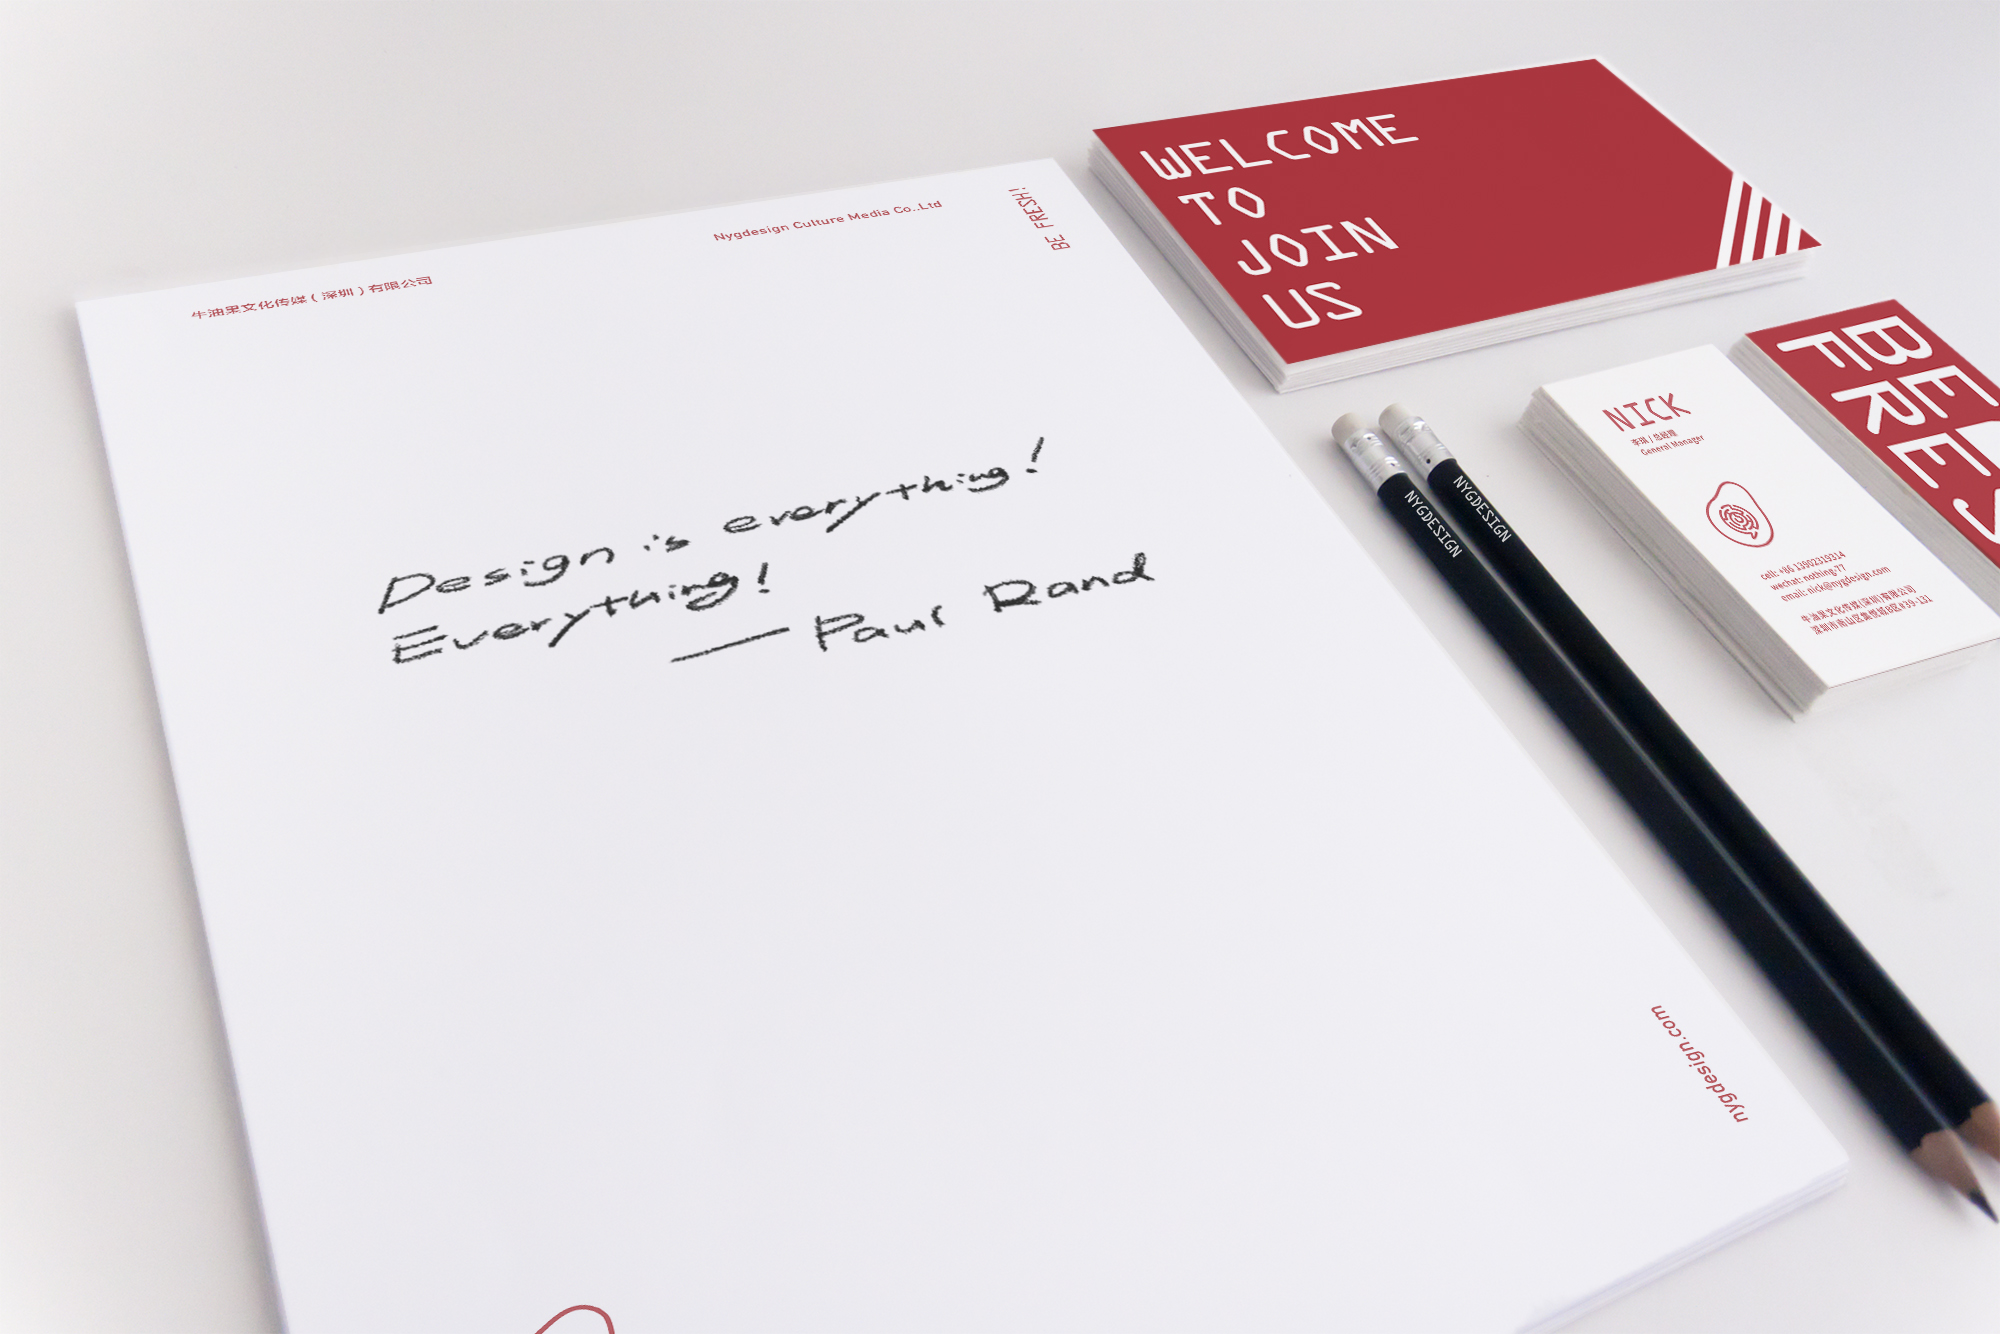 牛油果文化传媒（深圳）有限公司
Nygdesign Culture Media Co.,Ltd
BE FRESH!
Design is everything!
Everything!
— Paul Rand
nygdesign.com
WELCOME
TO
JOIN
US
NYGDESIGN
NYGDESIGN
NICK
李琪 / 总经理
General Manager
cell: +86 13902319314
wechat: nothing-77
email: nick@nygdesign.com
牛油果文化传媒(深圳)有限公司
深圳市南山区集悦城B区#39-131
BE
FRE